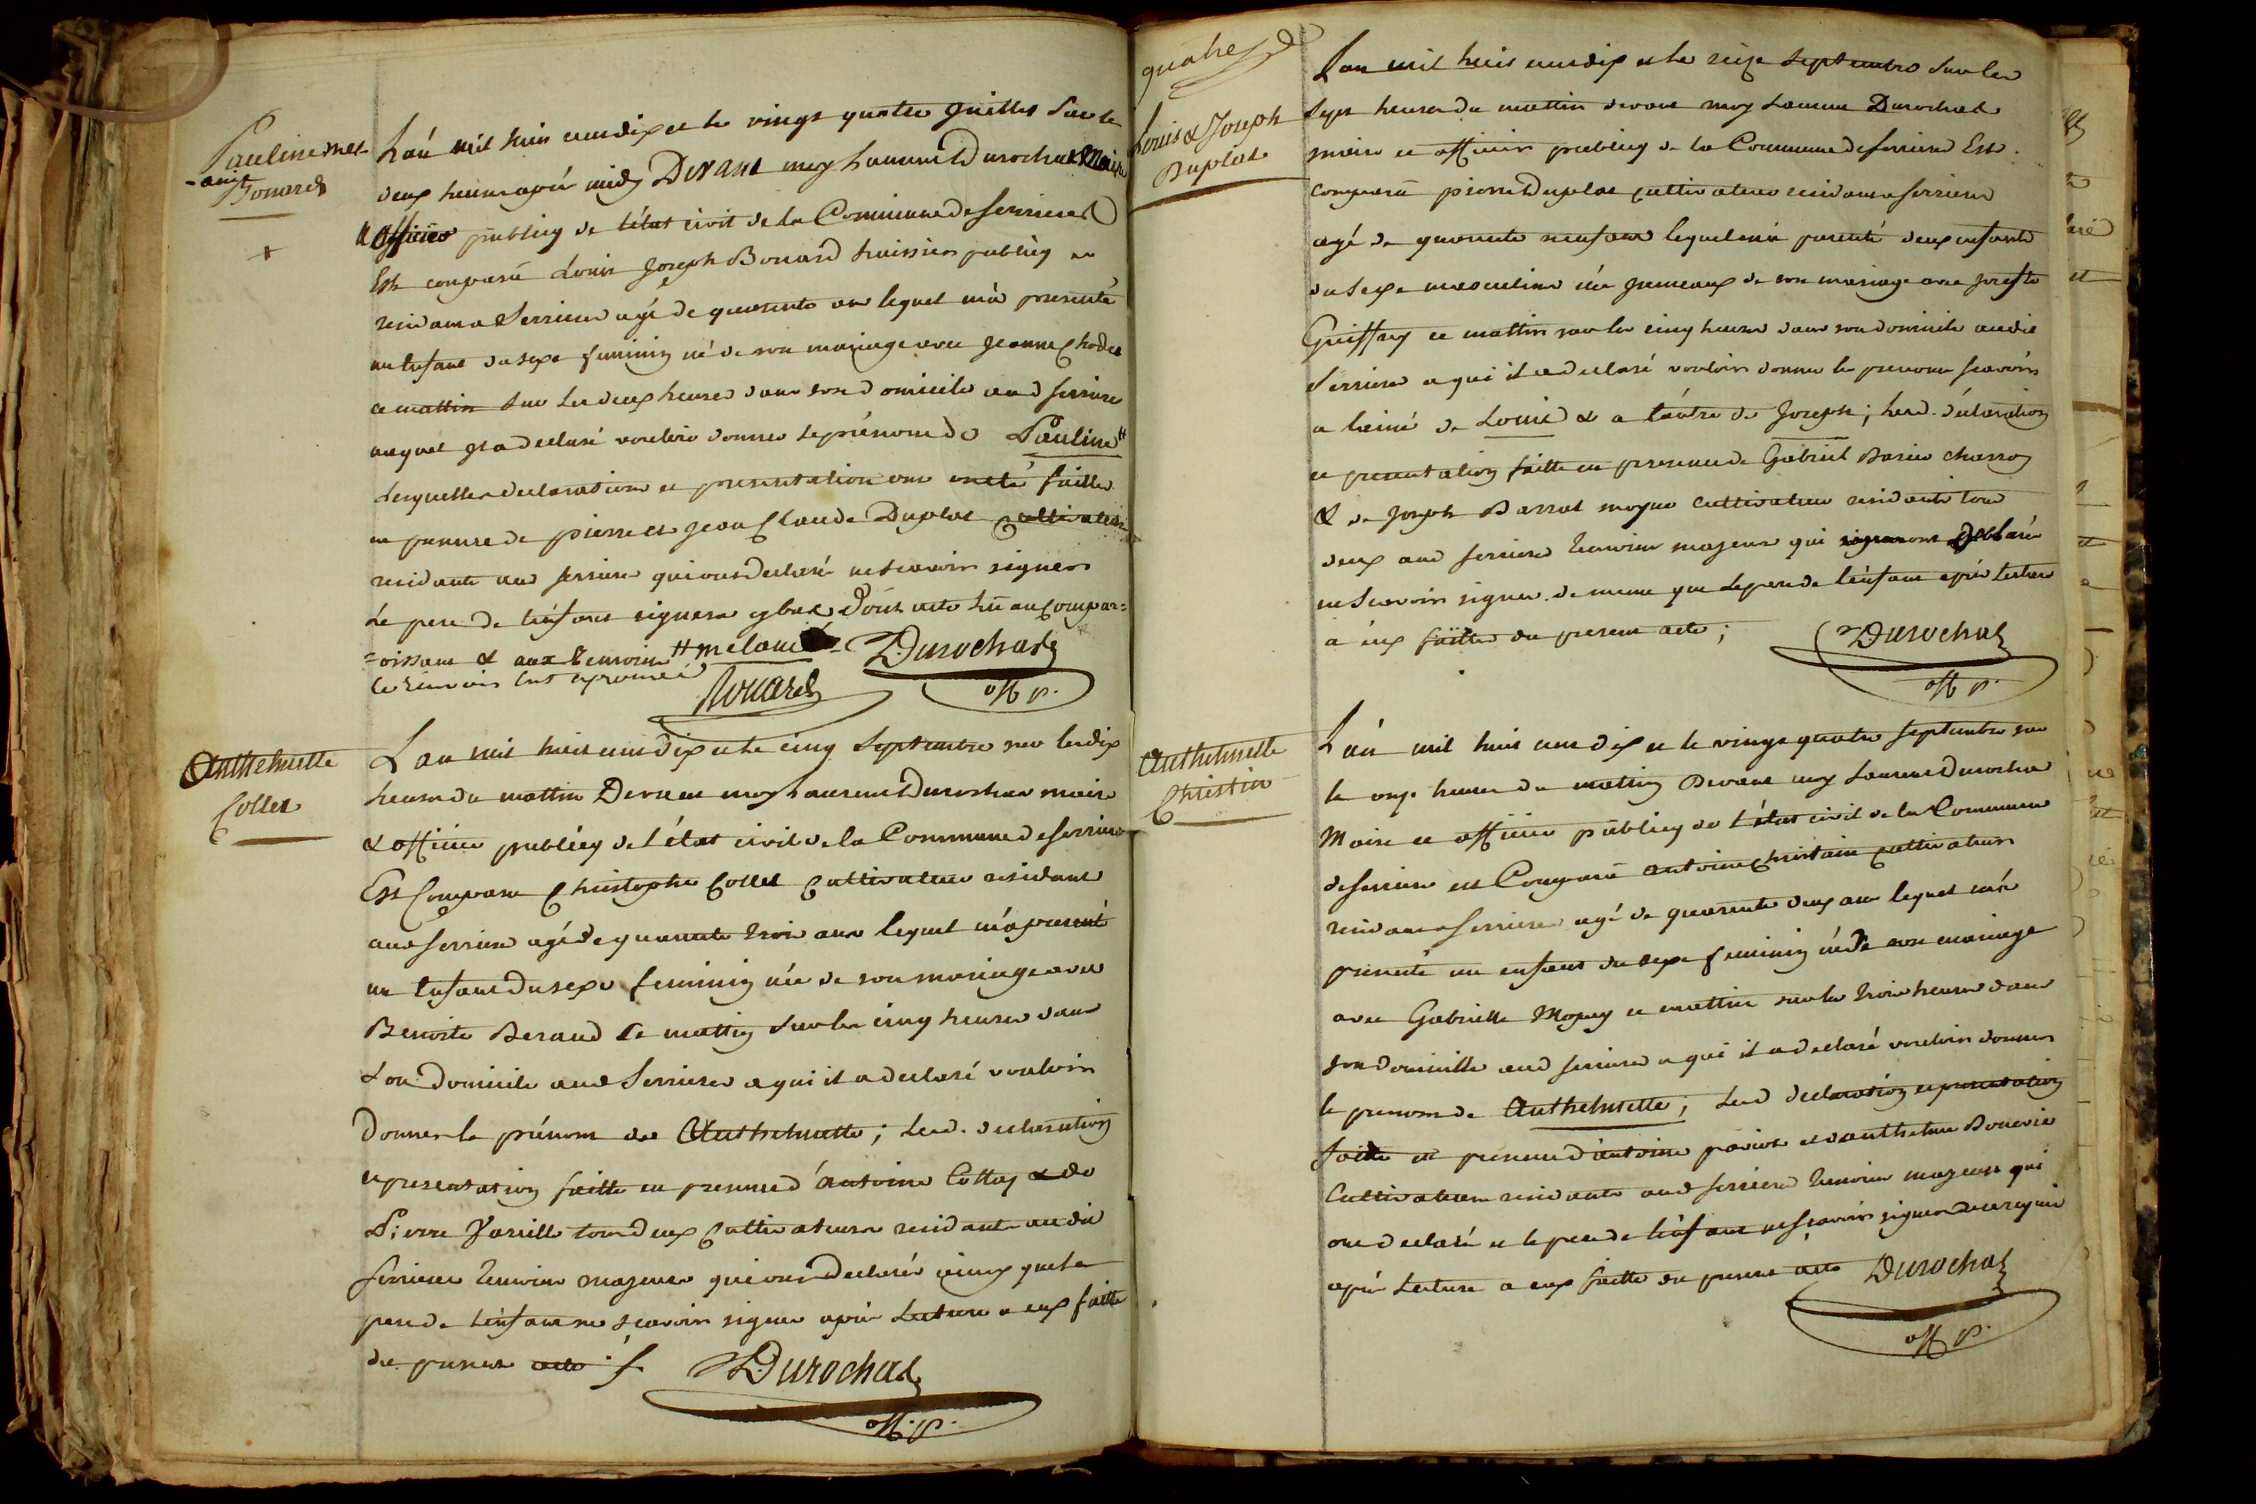 Pauline mel-
-anie
Bonard
L'an mil huit cent dix et le vingt quatre Juillet sur les
deux heures après midy Devant moy Laurent Durochat Maire
& officier publicq de l'état civil de la Commune de serrieres
Est comparu Louis Joseph Bonard huissier publicq
residant a Serrieres agé de quarante ans lequel m'a presenté
un Enfant du sexe feminin né de son mariage avec Jeanne
ce mattin sur les deux heures dans son domicile aud serriere
auquel il a declaré vouloir donner le prénom de Pauline #
lesquelles declaration et presentation ont été faittes
en presence de pierre et jean Claude Duplat cultivateurs
residants aud serriere qui ont declaré ne scavoir signer
Le pere de l'enfant signera dont acte lu au Compar=
=oissant & aux temoins # melanie Durochat
le renvois est aprouvé Bonard off. p.
Anthelmette
Collet
L'an mil huit cent dix et le cinq septembre sur les dix
heures du mattin Devant moy Laurent Durochat maire
& officier publicq de l'état civil de la Commune de serriere
Est Comparu Christophe Collet Cultivateur residant
aud serriere agé de quarante trois ans lequel m'a presenté
un Enfant du sexe feminin née de son mariage avec
Benoite Beraud Ce mattin sur les cinq heures dans
son domicile aud Serriere a qui il a declaré vouloir
Donner le prénom de Anthelmette ; Lesd. declaration
et presentation faitte en presence d'Antoine & de
Pierre tous deux Cultivateurs residants audit
serriere temoins majeurs qui ont declarés que le
pere de l'enfant ne scavoir signer après Lecture a eux faitte
du present acte ./. Durochat
off. p.
quatre
Louis & Joseph
Duplat
L'an mil huit cent dix et le seize septembre sur les
sept heures du mattin devant moy Laurent Durochat
maire et officier publicq de la Commune de serriere Est
comparu pierre Duplat cultivateur residant a serriere
agé de quarante neuf ans lequel m'a presenté deux enfants
du sexe masculin nés jumeaux de son mariage avec josephte
Guiffray ce mattin sur les cinq heures dans son domicile audit
Serriere a qui il a declaré vouloir donner le prenom scavoir
a l'ainé de Louis & a l'autre de Joseph ; Lesd. déclaration
et presentation faitte en presence de Gabriel charron
& de Joseph Barrat cultivateur residants tous
deux aud serriere temoins majeurs qui ont Declaré
ne scavoir signer de meme que le pere de l'enfant après lecture
a eux faitte du present acte ; Durochat
off. p.
Anthelmette
Christin
L'an mil huit cent dix et le vingt quatre septembre sur
les onze heures du mattin Devant moy Laurent Durochat
Maire et officier publicq de l'état civil de la Commune
de serriere est Comparu antoine Christain cultivateur
residant a serriere agé de quarante deux ans lequel m'a
presenté un enfant du sexe feminin né de son mariage
avec Gabrielle ce mattin sur les trois heures dans
son domicille aud serriere a qui il a declaré vouloir donner
le prenom de Anthelmette ; Lesd declaration et presentation
faitte en presence d'antoine et d'anthelme
Cultivateurs residants aud serriere temoins majeurs qui
ont declaré et le pere de l'enfant ne scavoir signer
après Lecture a eux faitte du present acte Durochat
off. p.